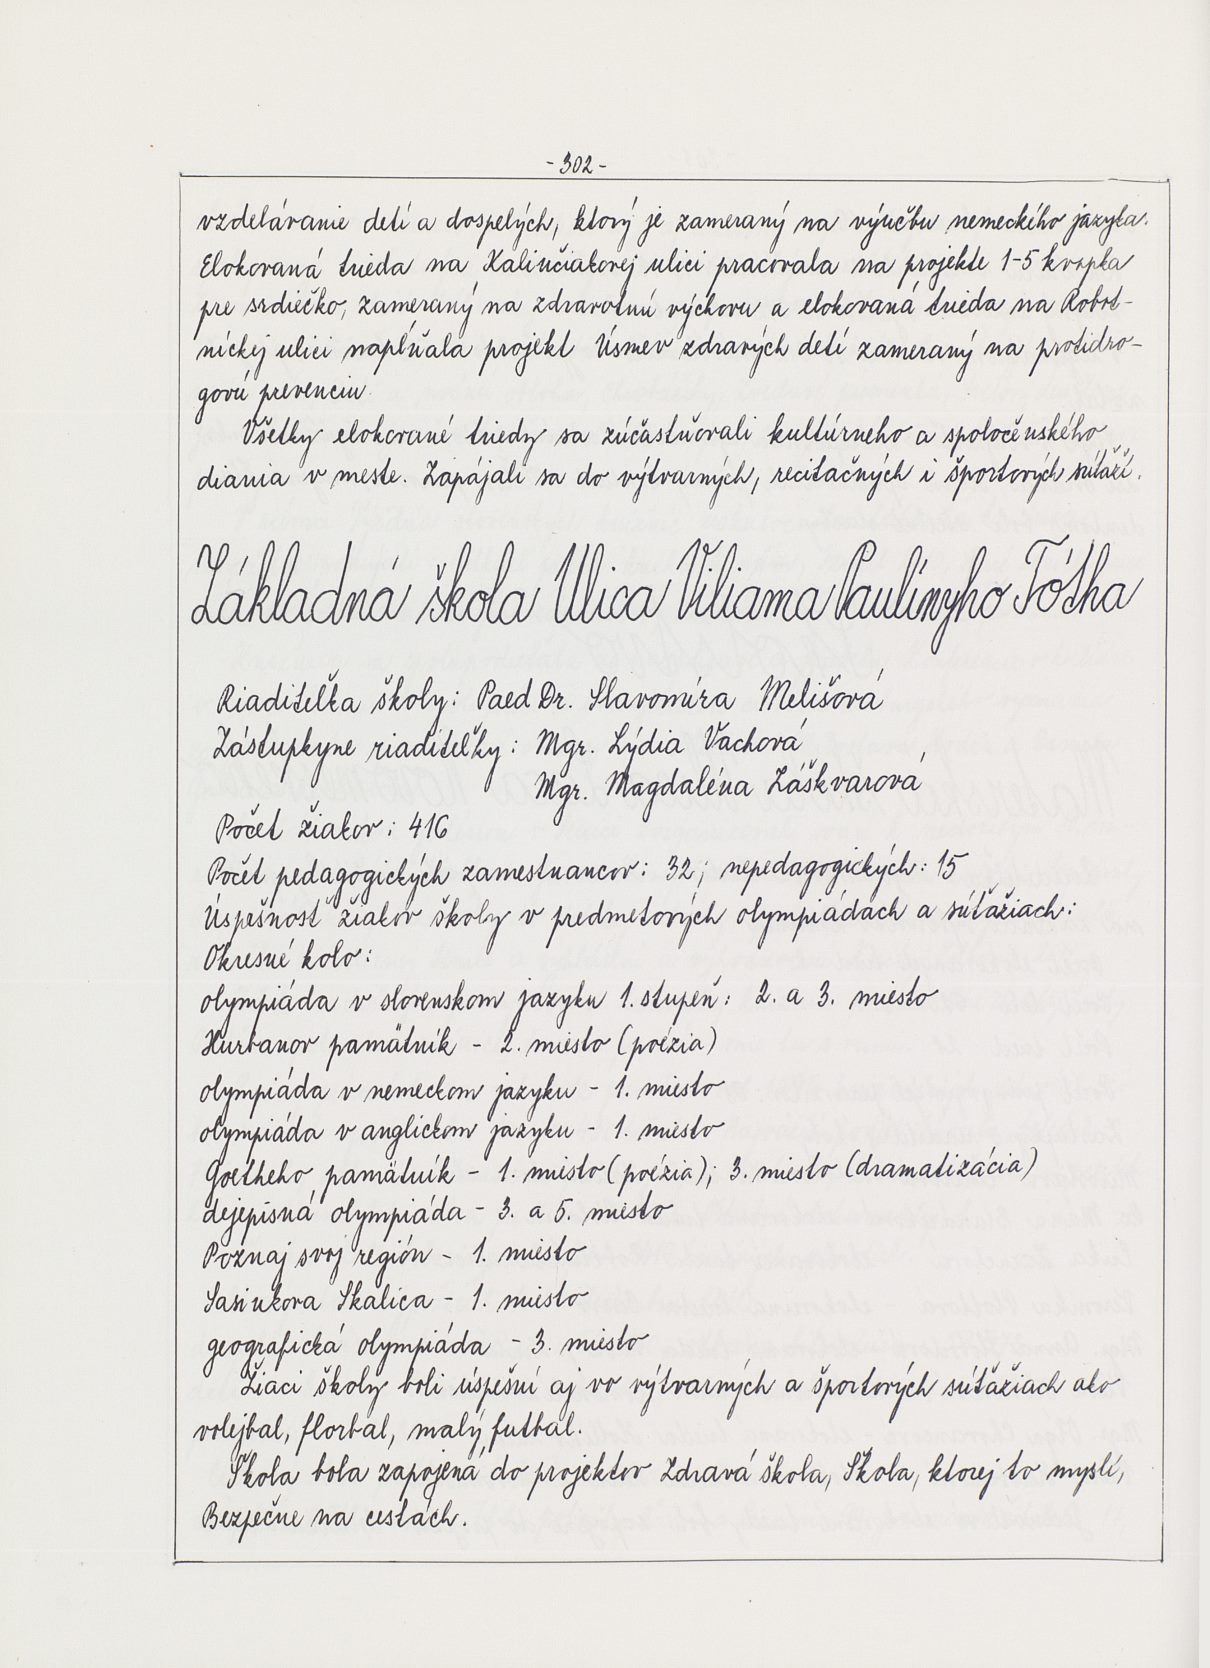 - 302 -
vzdelávanie detí a dospelých, ktorý je zameraný na výučbu nemeckého jazyka.
Elokovaná trieda na Kalinčiakovej ulici pracovala na projekte 1-5 kvapka
pre srdiečko, zameraný na zdravotnú výchovu a elokovaná trieda na Robot-
níckej ulici napĺňala projekt Úsmev zdravých detí zameraný na protidro-
govú prevenciu.
Všetky elokované triedy sa zúčastňovali kultúrneho a spoločenského
diania v meste. Zapájali sa do výtvarných, recitačných i športových súťaží.
Základná škola Ulica Viliama Paulínyho Tótha
Riaditeľka školy: PaedDr. Slavomíra Melišová
Zástupkyne riaditeľky: Mgr. Lýdia Vachová
Mgr. Magdaléna Záškvarová
Počet žiakov: 416
Počet pedagogických zamestnancov: 32; nepedagogických: 15
Úspešnosť žiakov školy v predmetových olympiádach a súťažiach:
Okresné kolo:
olympiáda v slovenskom jazyku 1. stupeň: 2. a 3. miesto
Hurbanov pamätník - 2. miesto (poézia)
olympiáda v nemeckom jazyku - 1. miesto
olympiáda v anglickom jazyku - 1. miesto
Goetheho pamätník - 1. miesto (poézia); 3. miesto (dramatizácia)
dejepisná olympiáda - 3. a 5. miesto
Poznaj svoj región - 1. miesto
Sasinkova Skalica - 1. miesto
geografická olympiáda - 3. miesto
Žiaci školy boli úspešní aj vo výtvarných a športových súťažiach ako
volejbal, florbal, malý futbal.
Škola bola zapojená do projektov Zdravá škola, Škola, ktorej to myslí,
Bezpečne na cestách.